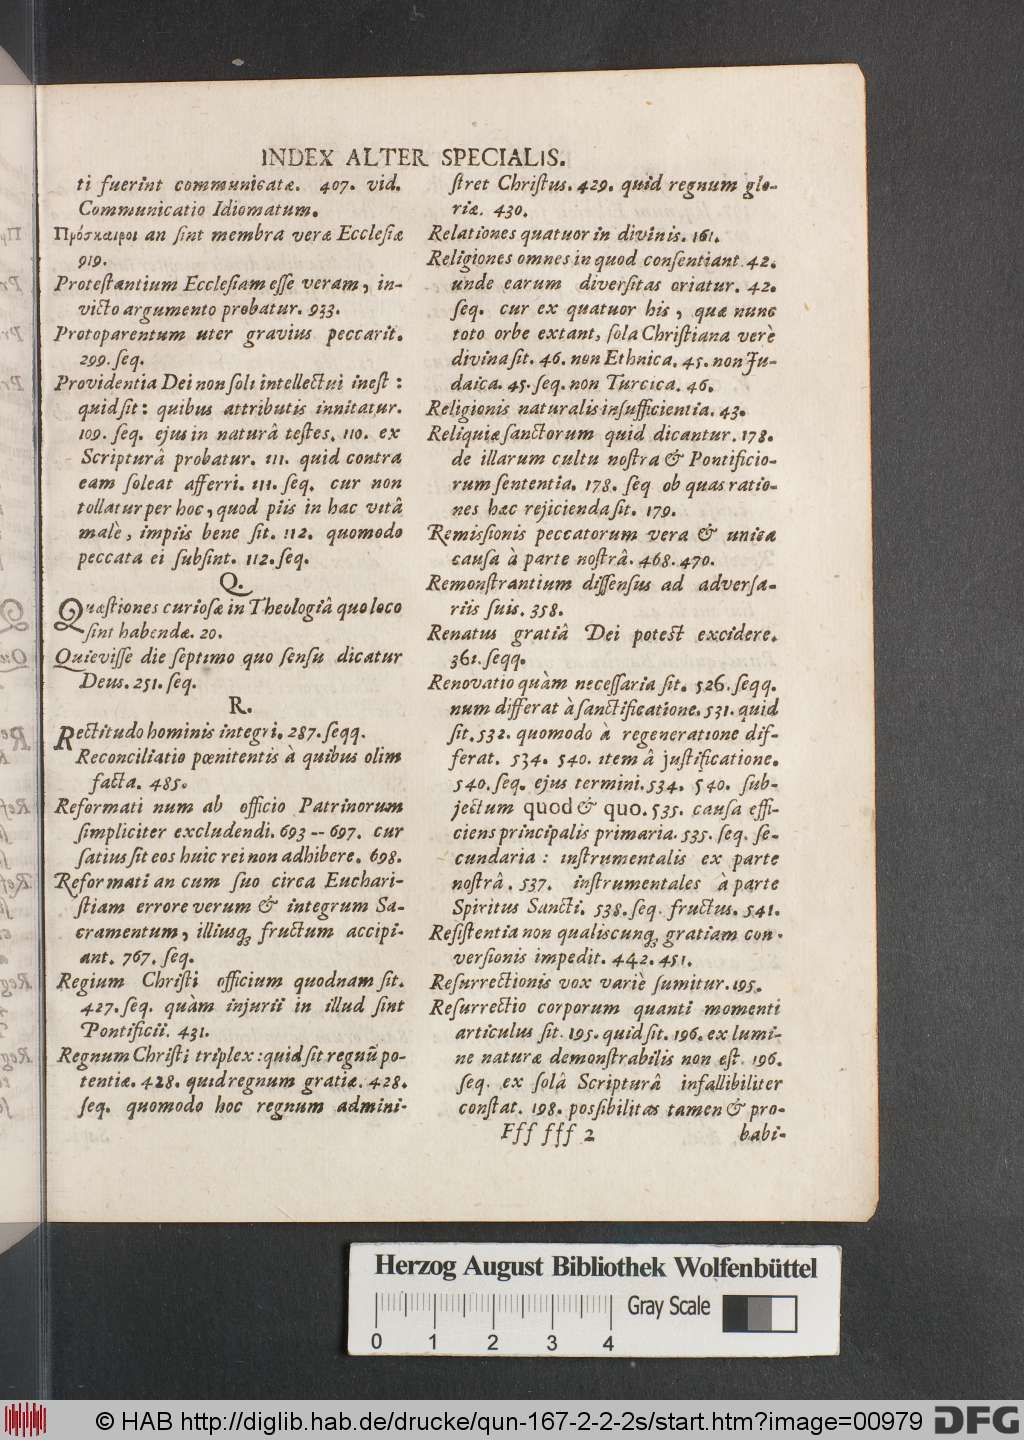 INDEX ALTER SPECIALIS.
ti fuerint communicatæ. 407. vid.
Communicatio Idiomatum.
Πρόσκαιροι an ſint membra veræ Eccleſiæ
919.
Proteſtantium Eccleſiam eſſe veram, in-
victo argumento probatur. 933.
Protoparentum uter gravius peccarit.
299. ſeq.
Providentia Dei non ſoli intellectui ineſt:
quid ſit: quibus attributis innitatur.
109. ſeq. ejus in naturâ teſtes. 110. ex
Scripturâ probatur. 111. quid contra
eam ſoleat afferri. 111. ſeq. cur non
tollatur per hoc, quod piis in hac vitâ
malè, impiis bene ſit. 112. quomodo
peccata ei ſubſint. 112. ſeq.
Q.
Quæſtiones curioſæ in Theologiâ quo loco
ſint habendæ. 20.
Quieviſſe die ſeptimo quo ſenſu dicatur
Deus. 251. ſeq.
R.
Rectitudo hominis integri. 287. ſeqq.
Reconciliatio pœnitentis à quibus olim
facta. 485.
Reformati num ab officio Patrinorum
ſimpliciter excludendi. 693--697. cur
ſatius ſit eos huic rei non adhibere. 698.
Reformati an cum ſuo circa Euchari-
ſtiam errore verum & integrum Sa-
cramentum, illiusq́ fructum accipi-
ant. 767. ſeq.
Regium Chriſti officium quodnam ſit.
427. ſeq. quàm injurii in illud ſint
Pontificii. 431.
Regnum Chriſti triplex: quid ſit regnũ po-
tentiæ. 428. quid regnum gratiæ. 428.
ſeq. quomodo hoc regnum admini-
ſtret Chriſtus. 429. quid regnum glo-
riæ. 430.
Relationes quatuor in divinis. 161.
Religiones omnes in quod conſentiant. 42.
unde earum diverſitas oriatur. 42.
ſeq. cur ex quatuor his, quæ nunc
toto orbe extant, ſola Chriſtiana verè
divina ſit. 46. non Ethnica. 45. non Ju-
daica. 45. ſeq. non Turcica. 46.
Religionis naturalis inſufficientia. 43.
Reliquiæ ſanctorum quid dicantur. 178.
de illarum cultu noſtra & Pontificio-
rum ſententia. 178. ſeq ob quas ratio-
nes hæc rejicienda ſit. 179.
Remiſſionis peccatorum vera & unica
cauſa à parte noſtrâ. 468. 470.
Remonſtrantium diſſenſus ad adverſa-
riis ſuis. 358.
Renatus gratiâ Dei poteſt excidere.
361. ſeqq.
Renovatio quàm neceſſaria ſit. 526. ſeqq.
num differat à ſanctificatione. 531. quid
ſit. 532. quomodo à regeneratione dif-
ferat. 534. 540. item â juſtificatione.
540. ſeq. ejus termini. 534. 540. ſub-
jectum quod & quo. 535. cauſa effi-
ciens principalis primaria. 535. ſeq. ſe-
cundaria: inſtrumentalis ex parte
noſtrâ. 537. inſtrumentales à parte
Spiritus Sancti. 538. ſeq. fructus. 541.
Reſiſtentia non qualiscunq́ gratiam con-
verſionis impedit. 442. 451.
Reſurrectionis vox variè ſumitur. 195.
Reſurrectio corporum quanti momenti
articulus ſit. 195. quid ſit. 196. ex lumi-
ne naturæ demonſtrabilis non eſt. 196.
ſeq. ex ſolâ Scripturâ infallibiliter
conſtat. 198. poſſibilitas tamen & pro-
Fff fff 2 babi-
Herzog August Bibliothek Wolfenbüttel
Gray Scale
0 1 2 3 4
© HAB http://diglib.hab.de/drucke/qun-167-2-2-2s/start.htm?image=00979 DFG